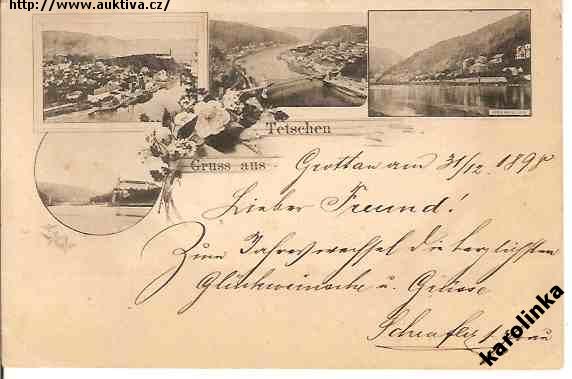 http://www.auktiva.cz/
Tetschen
Gruss aus
Grottau am 31/12. 1898
Lieber Freund!
Zum Jahreswechsel die herzlichsten
Glückwünsche u. Grüsse
karolinka